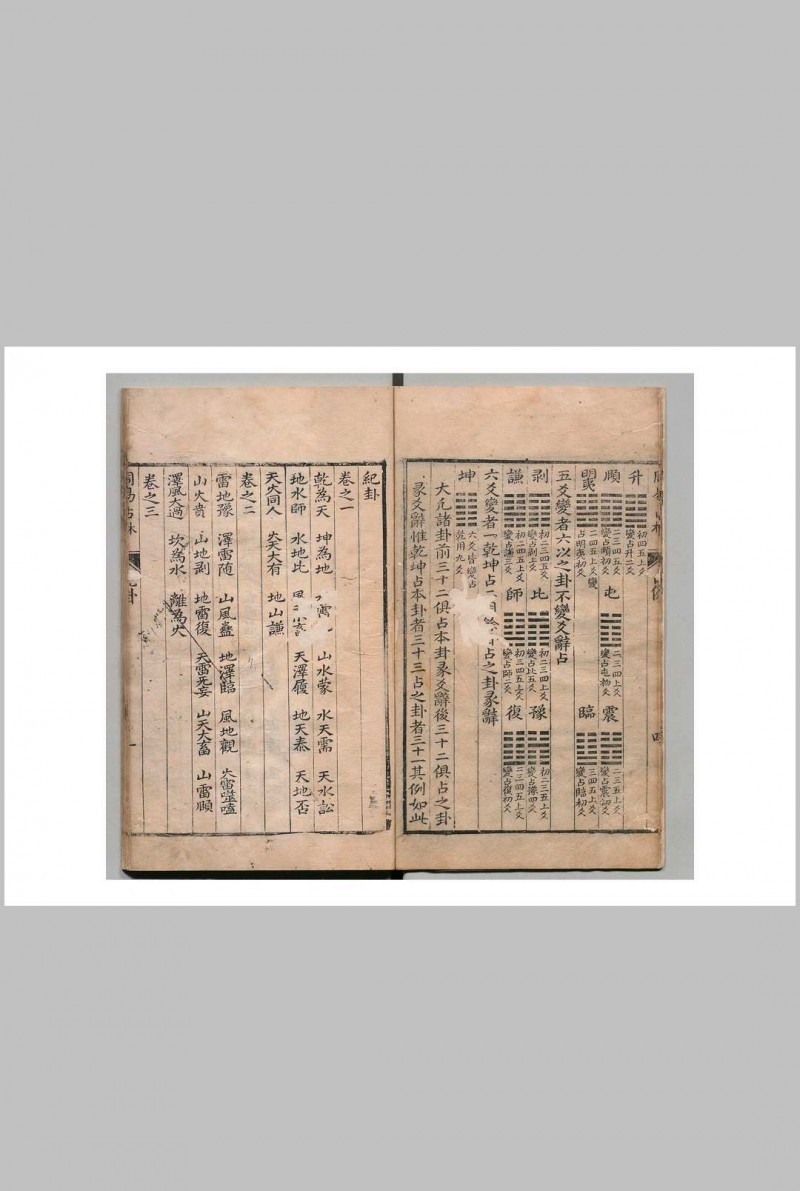 升
初四五上爻
變占升二爻
頤
二三四五爻
變占頤初爻
屯
二三四上爻
變占屯初爻
震
二三五上爻
變占震初爻
明夷
二四五上爻變
占明夷初爻
臨
三四五上爻
變占臨初爻
五爻變者六以之卦不變爻辭占
剥
初二三四五爻
變占剥上爻
比
初二三四上爻
變占比五爻
豫
初二三五上爻
變占豫四爻
謙
初二四五上爻
變占謙三爻
師
初三四五上爻
變占師二爻
復
二三四五上爻
變占復初爻
六爻變者一乾坤占二用餘占之卦彖辭
坤
六爻皆變占
乾用九爻
大凡諸卦前三十二俱占本卦彖爻辭後三十二俱占之卦
彖爻辭惟乾坤占本卦者三十三占之卦者三十一其例如此
紀卦
卷之一
乾為天 坤為地 山水蒙 水天需 天水訟
地水師 水地比 天澤履 地天泰 天地否
天火同人 火天大有 地山謙
卷之二
雷地豫 澤雷随 山風蠱 地澤臨 風地觀 火雷噬嗑
山火賁 山地剥 地雷復 天雷无妄 山天大畜 山雷頤
澤風大過 坎為水 離為火
卷之三
周易占林